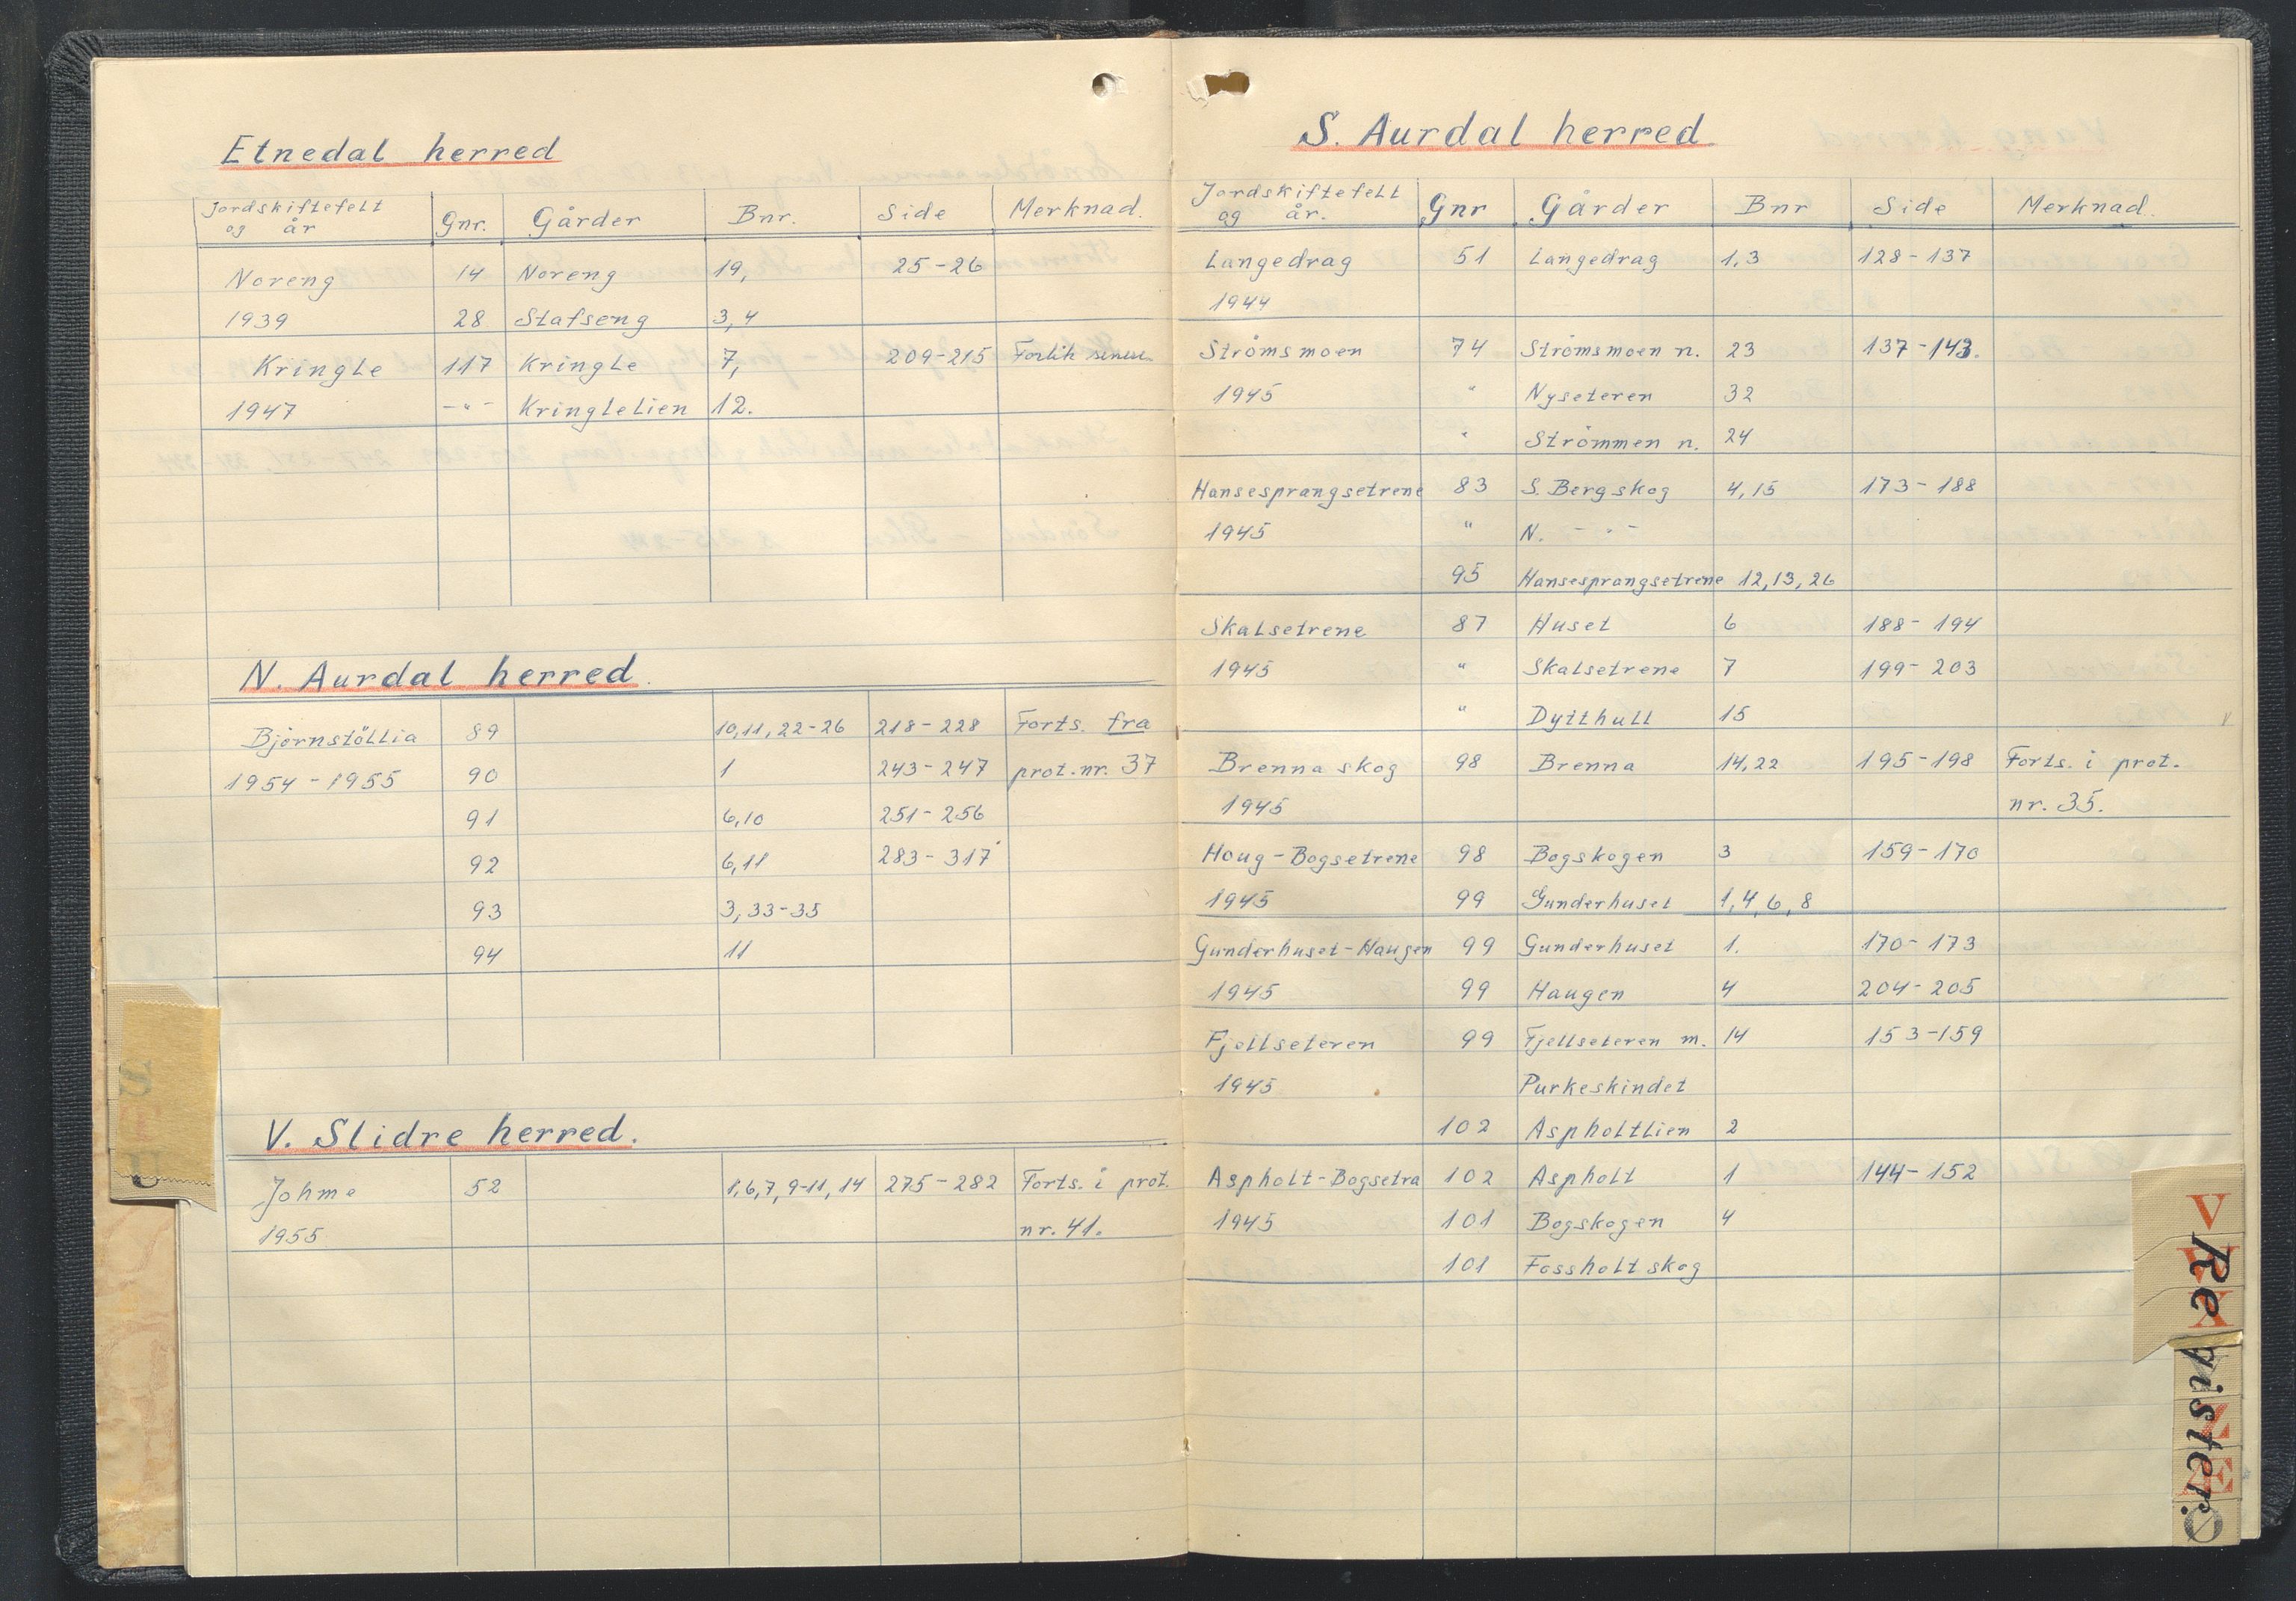 Etnedal herred
Jordskiftefelt og år Gnr. Gårder Bnr. Side Merknad.
Noreng 14 Noreng 19, 25-26
1939 28 Stafseng 3,4
Kringle 117 Kringle 7, 209-215 Forlik
1947 -"- Kringlelien 12.
N. Aurdal herred.
Björnstöllia 89 10,11,22-26 218-228 Forts. fra
1954-1955 90 1 243-247 prot. nr. 37
91 6,10 251-256
92 6,11 283-317
93 3,33-35
94 11
V. Slidre herred.
Johme 52 1,6,7,9-11,14 275-282 Forts. i prot.
1955 nr. 41.
S. Aurdal herred
Jordskiftefelt og år. Gnr Gårder Bnr Side Merknad.
Langedrag 51 Langedrag 1,3 128-137
1944
Strömsmoen 74 Strömsmoen n. 23 137-143.
1945 " Nyseteren 32
" Strömmen n. 24
Hansesprangsetrene 83 S. Bergskog 4,15 173-188
1945 " N. - " -
95 Hansesprangsetrene 12,13,26
Skalsetrene 87 Huset 6 188-194
1945 " Skalsetrene 7 199-203
" Dytthull 15
Brenna skog 98 Brenna 14,22 195-198 Forts. i prot.
1945 nr. 35.
Houg-Bogsetrene 98 Bogskogen 3 159-170
1945 99 Gunderhuset 1,4,6,8
Gunderhuset-Haugen 99 Gunderhuset 1. 170-173
1945 99 Haugen 4 204-205
Fjellseteren 99 Fjellseteren m. 14 153-159
1945 Purkeskindet
102 Aspholtlien 2
Aspholt-Bogsetra 102 Aspholt 1 144-152
1945 101 Bogskogen 4
101 Fossholt skog
Register.